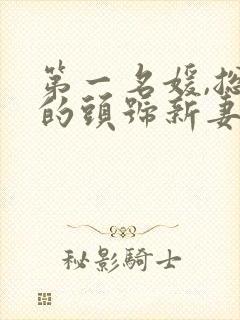 第一名媛,總
的頭號新妻
秘影騎士